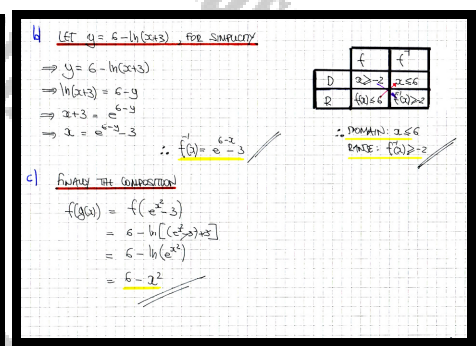 b) LET y = 6 - ln(x+3), FOR SIMPLICITY
⇒ y = 6 - ln(x+3)
⇒ ln(x+3) = 6-y
⇒ x+3 = e^{6-y}
⇒ x = e^{6-y} - 3
∴ f^{-1}(x) = e^{6-x} - 3
f f^{-1}
D x≥-2 x≤6
R f(x)≤6 f^{-1}(x)≥-2
∴ DOMAIN: x≤6
RANGE: f^{-1}(x)≥-2
c) FINALLY THE COMPOSITION
f(g(x)) = f(e^{x²}-3)
= 6 - ln[(e^{x²}-3)+3]
= 6 - ln(e^{x²})
= 6 - x²